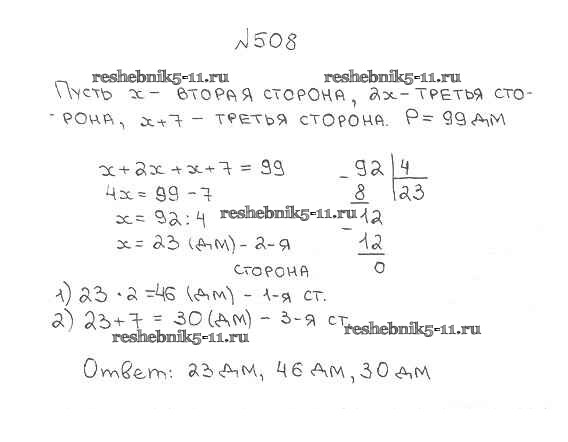 №508
reshebnik5-11.ru reshebnik5-11.ru
Пусть x - вторая сторона, 2x - третья сто-
-рона, x+7 - третья сторона. P = 99 дм
x+2x+x+7 = 99 - 92 | 4
4x = 99 - 7 8 23
x = 92 : 4 reshebnik5-11.ru - 12
x = 23 (дм) - 2-я 12
сторона 0
1) 23 · 2 = 46 (дм) - 1-я ст.
2) 23+7 = 30 (дм) - 3-я ст.
reshebnik5-11.ru reshebnik5-11.ru
Ответ: 23 дм, 46 дм, 30 дм